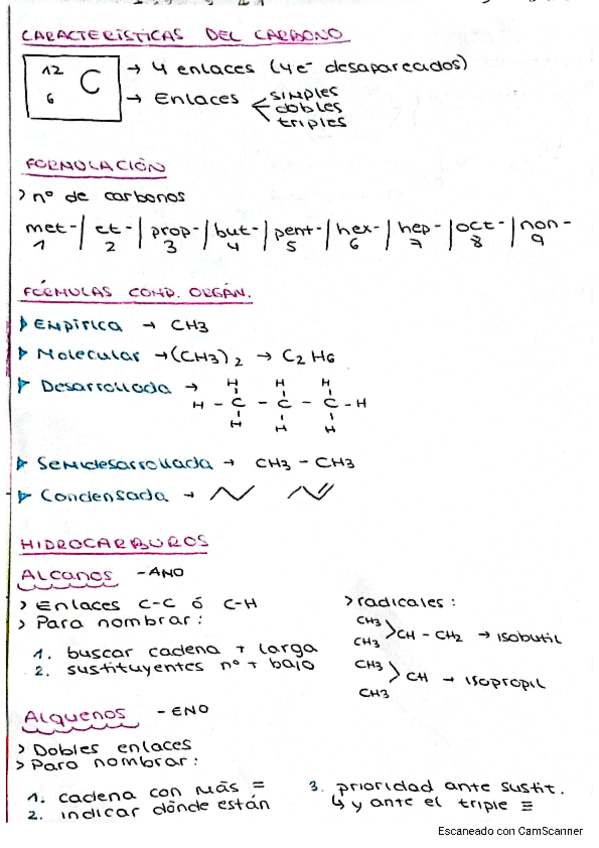 CARACTERÍSTICAS DEL CARBONO
12
6 C
→ 4 enlaces (4e⁻ desapareados)
→ Enlaces < simples
dobles
triples
FORMULACIÓN
> nº de carbonos
met- | et- | prop- | but- | pent- | hex- | hep- | oct- | non-
1 2 3 4 5 6 7 8 9
FÓRMULAS COMP. ORGÁN.
Empírica → CH3
Molecular → (CH3)2 → C2H6
Desarrollada →
H H H
H - C - C - C - H
H H H
Semidesarrollada → CH3 - CH3
Condensada →
HIDROCARBUROS
Alcanos -ANO
> Enlaces C-C ó C-H
> Para nombrar:
1. buscar cadena + larga
2. sustituyentes nº + bajo
> radicales:
CH3
CH3 > CH - CH2 → isobutil
CH3
CH3 > CH → isopropil
Alquenos -ENO
> Dobles enlaces
> Para nombrar:
1. cadena con más =
2. indicar dónde están
3. prioridad ante sustit.
↳ y ante el triple ≡
Escaneado con CamScanner